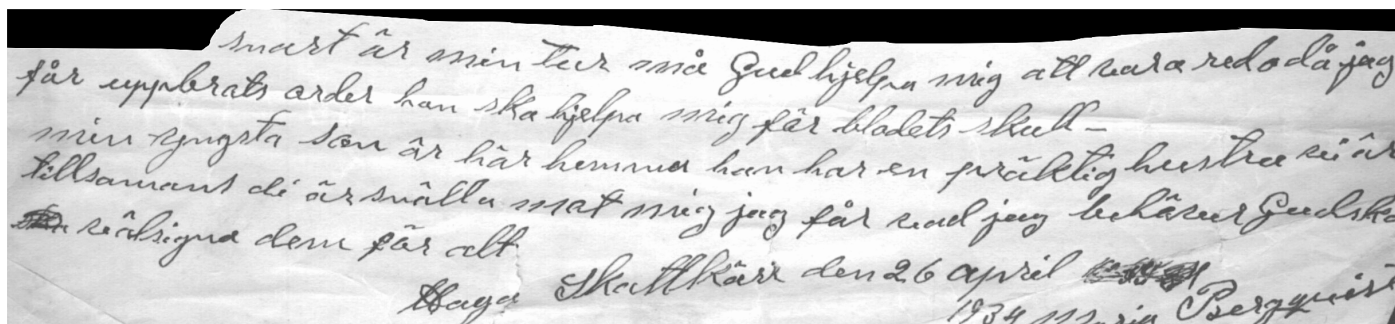 snart är min tur må Gud hjelpa mig att vara redo då jag
får uppbråts order han ska hjelpa mig för blodets skull -
min yngsta son är här hemma han har en präktig hustru vi är
tillsamans di är snälla mot mig jag får vad jag behöver Gud ska
välsigna dem för alt
Haga Skattkärr den 26 april
1934 Maria Bergquist